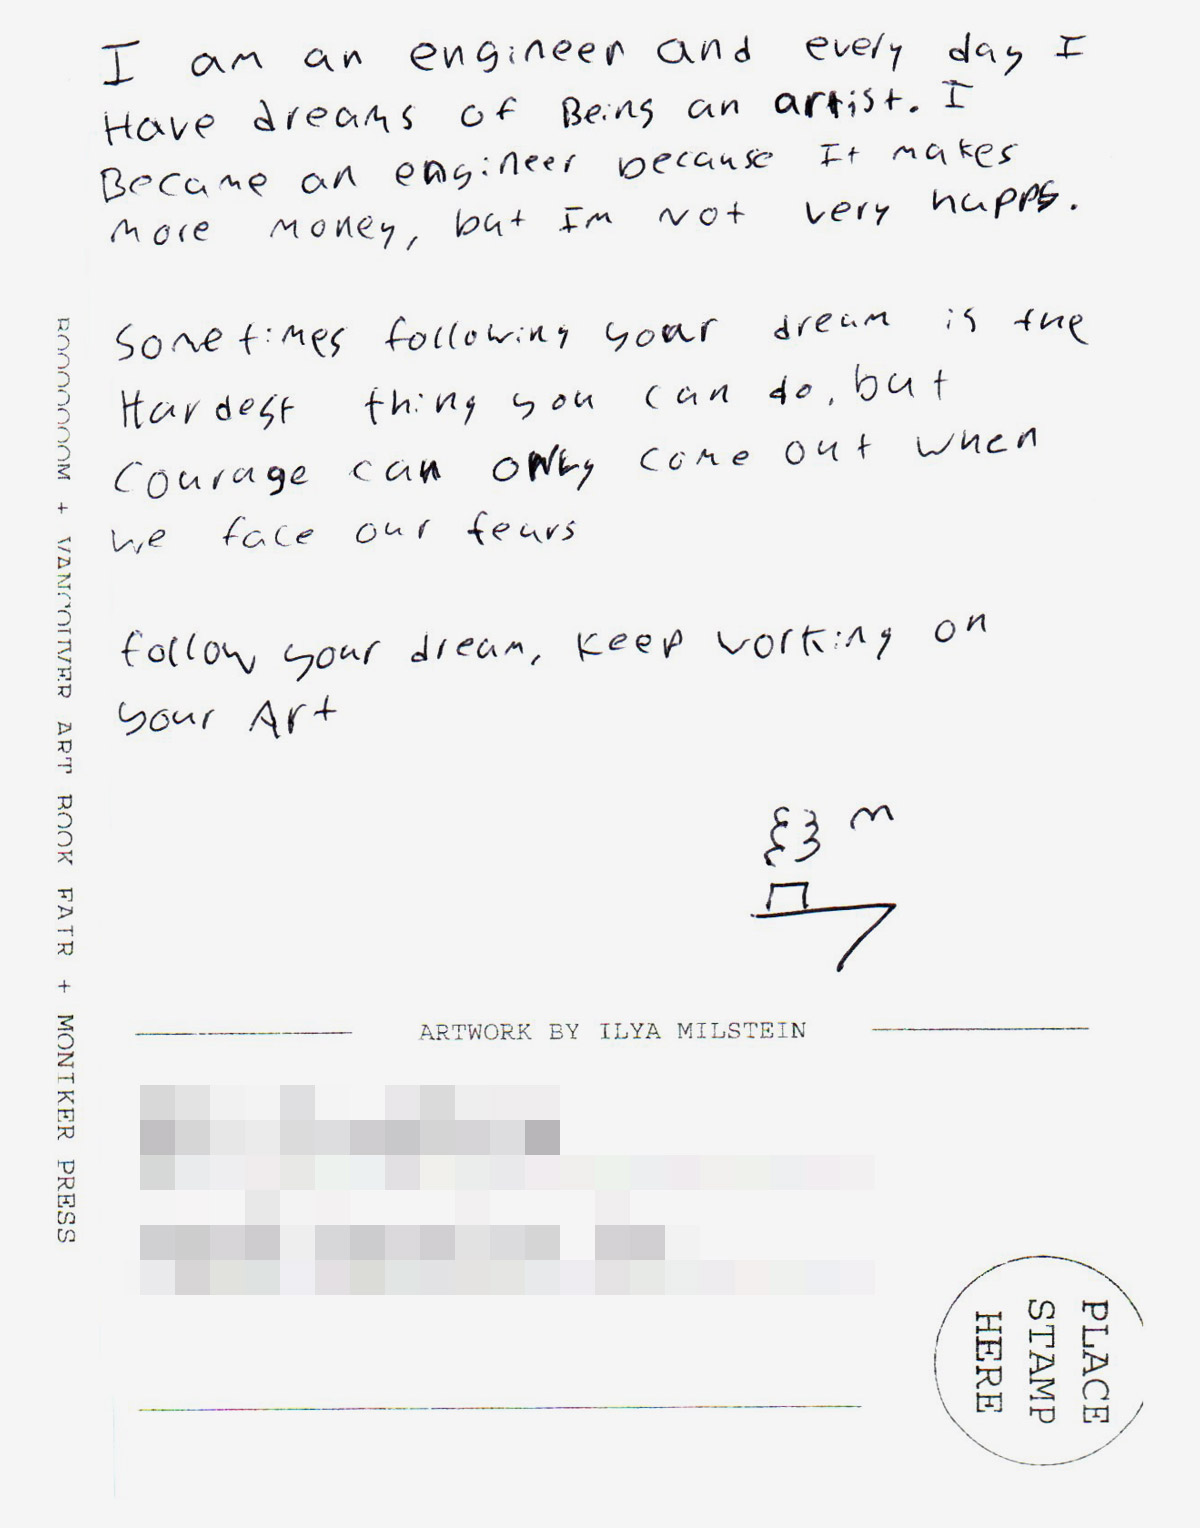 I am an engineer and every day I
Have dreams of Being an artist. I
Became an engineer because It makes
more money, but Im not very happy.
Sometimes following your dream is the
Hardest thing you can do, but
Courage can only come out when
we face our fears
follow your dream, keep working on
your Art
ARTWORK BY ILYA MILSTEIN
BOOOOOOOM + VANCOUVER ART BOOK FAIR + MONIKER PRESS
PLACE
STAMP
HERE